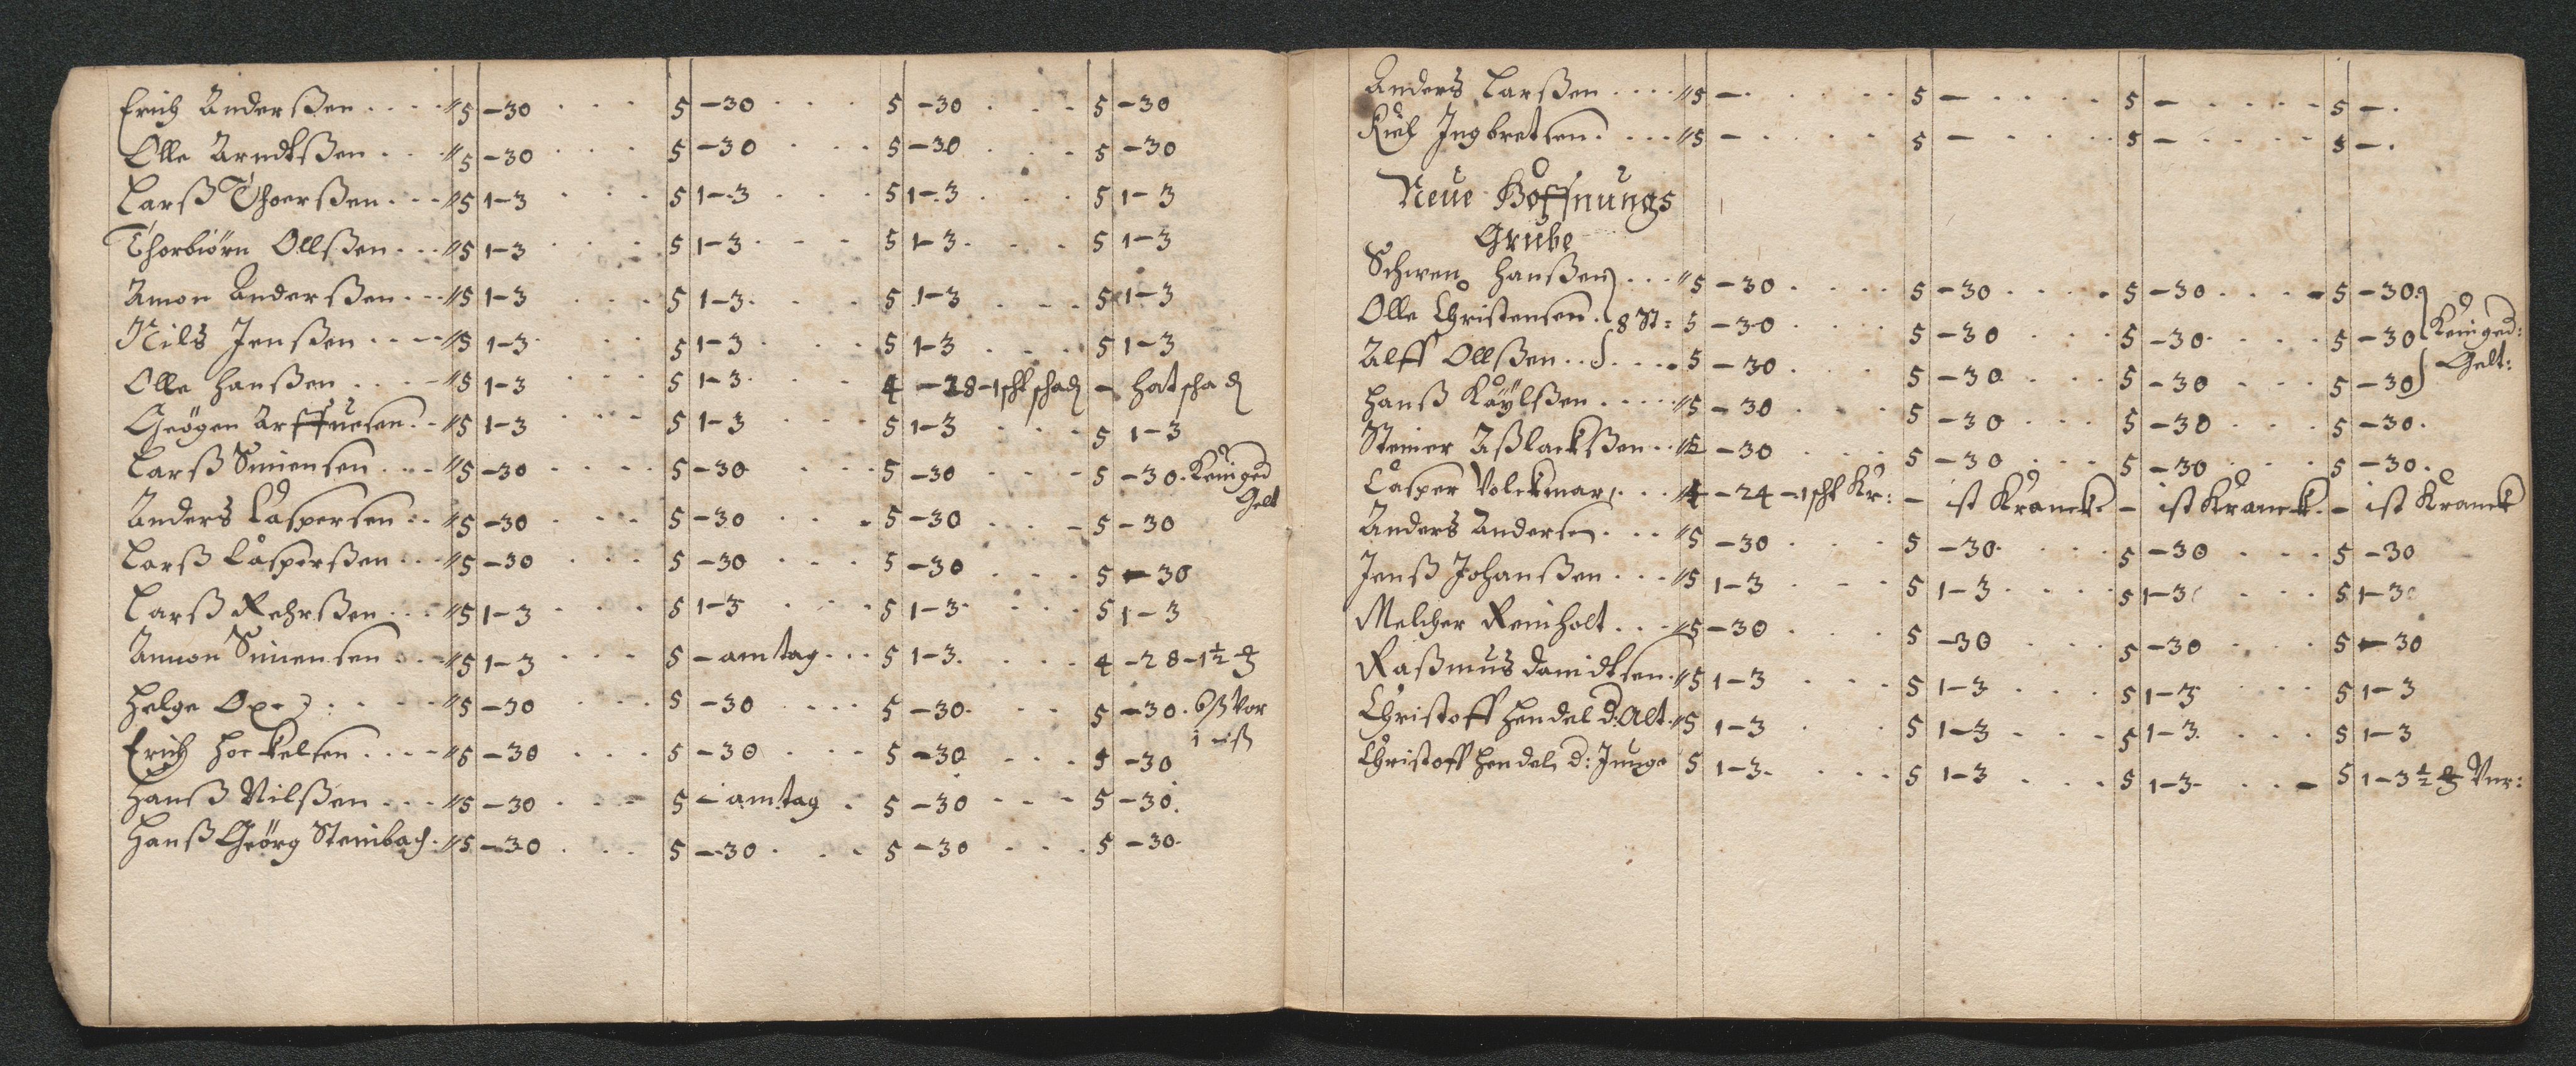 Erich Anderßen . . . . 5 – 30 . . . 5 – 30 . . . 5 – 30 . . . 5 – 30
Olle Arndtßen . . . 5 – 30 . . . 5 – 30 . . . 5 – 30 . . . 5 – 30
Larß Thoerßen . . . 5 1 – 3 . . . 5 1 – 3 . . . 5 1 – 3 . . . 5 1 – 3
Thorbiörn Ollßen . . . 5 1 – 3 . . . 5 1 – 3 . . . 5 1 – 3 . . . 5 1 – 3
Amon Anderßen . . . 5 1 – 3 . . . 5 1 – 3 . . . 5 1 – 3 . . . 5 1 – 3
Nils Jenßen . . . . 5 1 – 3 . . . 5 1 – 3 . . . 5 1 – 3 . . . 5 1 – 3
Olle Hanßen . . . . 5 1 – 3 . . . 5 1 – 3 . . . 4 – 28 – 1 scht schad – hat schad
Geögen . . 5 1 – 3 . . . 5 1 – 3 . . . 5 1 – 3 . . . 5 1 – 3
Larß Simensen . . . 5 – 30 . . . 5 – 30 . . . 5 – 30 . . . 5 – 30 . Kein ged
Gelt
Anders Caspersen . . 5 – 30 . . . 5 – 30 . . . 5 – 30 . . . 5 – 30
Larß Casperßen . . . 5 – 30 . . . 5 – 30 . . . 5 – 30 . . . 5 – 30
Larß Rehrßen . . . 5 1 – 3 . . . 5 1 – 3 . . . 5 1 – 3 . . . 5 1 – 3
Ammon Simensen . . 5 1 – 3 . . . 5 – am tag . . . 5 1 – 3 . . . 4 – 28 – 1½
Helge Oxe . . . . 5 – 30 . . . 5 – 30 . . . 5 – 30 . . . 5 – 30 . 6 ß Vor
Erich Hockelsen . . . . 5 – 30 . . . 5 – 30 . . . 5 – 30 . . . 5 – 30
Hanß Nilßen . . . 5 – 30 . . . 5 – am tag . 5 – 30 . . . 5 – 30.
Hanß Georg Steinbach . 5 – 30 . . . 5 – 30 . . . 5 – 30 . . . 5 – 30.
Anders Larßen . . . . 5 – . . . . 5 – . . . . 5 – . . . . 5 – .
Kiel Ingbretsen . . . . 5 – . . . . 5 – . . . . 5 – . . . . 5 – .
Neue Hoffnungs
Grube
Schwen Hanßen . . . 5 – 30 . . . . 5 – 30 . . . . 5 – 30 . . . . 5 – 30
Olle Christensen . 8 St: 5 – 30 . . . . 5 – 30 . . . 5 – 30 . . . . 5 – 30 Kein ged:
Alff Ollßen . . . . . . 5 – 30 . . . 5 – 30 . . . 5 – 30 . . . 5 – 30 Gelt:
Hanß Käÿlßen . . . . . 5 – 30 . . . . 5 – 30 . . . 5 – 30 . . . 5 – 30 .
Steiner Aßlackßen . . 5 – 30 . . . 5 – 30 . . . 5 – 30 . . . 5 – 30 .
Casper Volckmar . . . 4 – 24 – 1 scht Kr: – ist Kranck – ist Kranck – ist Kranck
Anders Andersen . . . 5 – 30 . . . 5 – 30 . . . 5 – 30 . . . 5 – 30
Jenß Johanßen . . . 5 1 – 3 . . . 5 1 – 3 . . . . 5 1 – 3 . . . 5 1 – 3
Melcher Reinholt . . . 5 – 30 . . . 5 – 30 . . . 5 – 30 . . . 5 – 30
Raßmus Davidtsen . 5 1 – 3 . . . 5 1 – 3 . . . 5 1 – 3 . . . . 5 1 – 3
Christoff Hendel d: Alt . 5 1 – 3 . . . 5 1 – 3 . . . 5 1 – 3 . . . . 5 1 – 3
Christoff Hendel d: Junge 5 1 – 3 . . . . 5 1 – 3 . . . 5 1 – 3 . . . – 5 1 – 3 ½